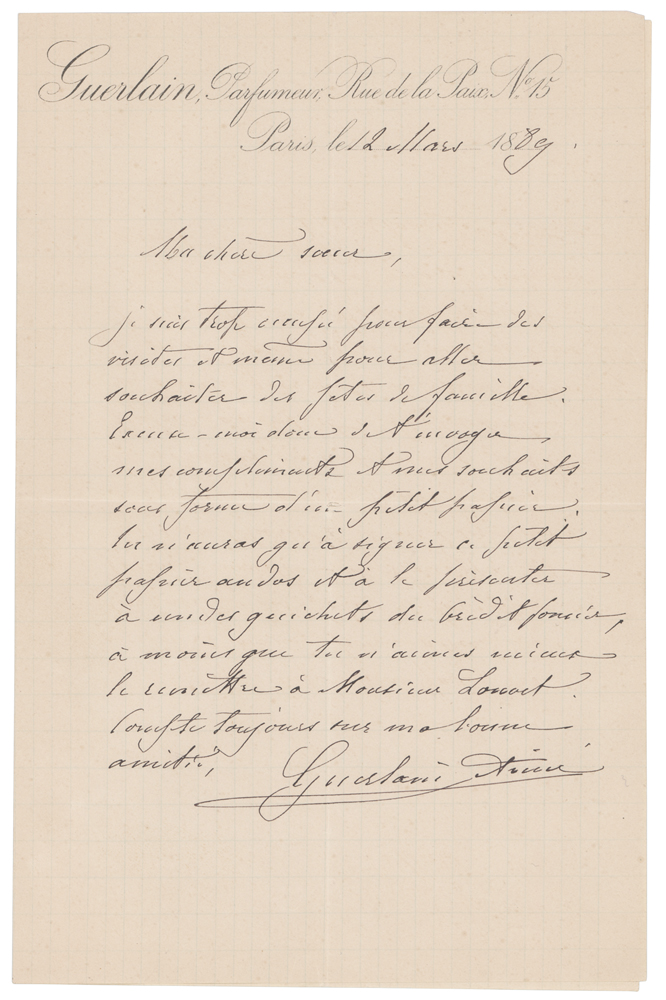 Guerlain, Parfumeur, Rue de la Paix, No 15
Paris, le 12 Mars 1889.
Ma chère soeur,
je suis trop occupé pour faire des
visites et même pour aller
souhaiter des fêtes de famille.
Excuse-moi donc de t'envoyer
mes compliments et mes souhaits
sous forme d'un petit papier.
tu n'auras qu'à signer ce petit
papier au dos et à le présenter
à un des guichets du Crédit foncier,
à moins que tu n'aimes mieux
le remettre à Monsieur
Compte toujours sur ma bonne
amitié,
Guerlain Aimé